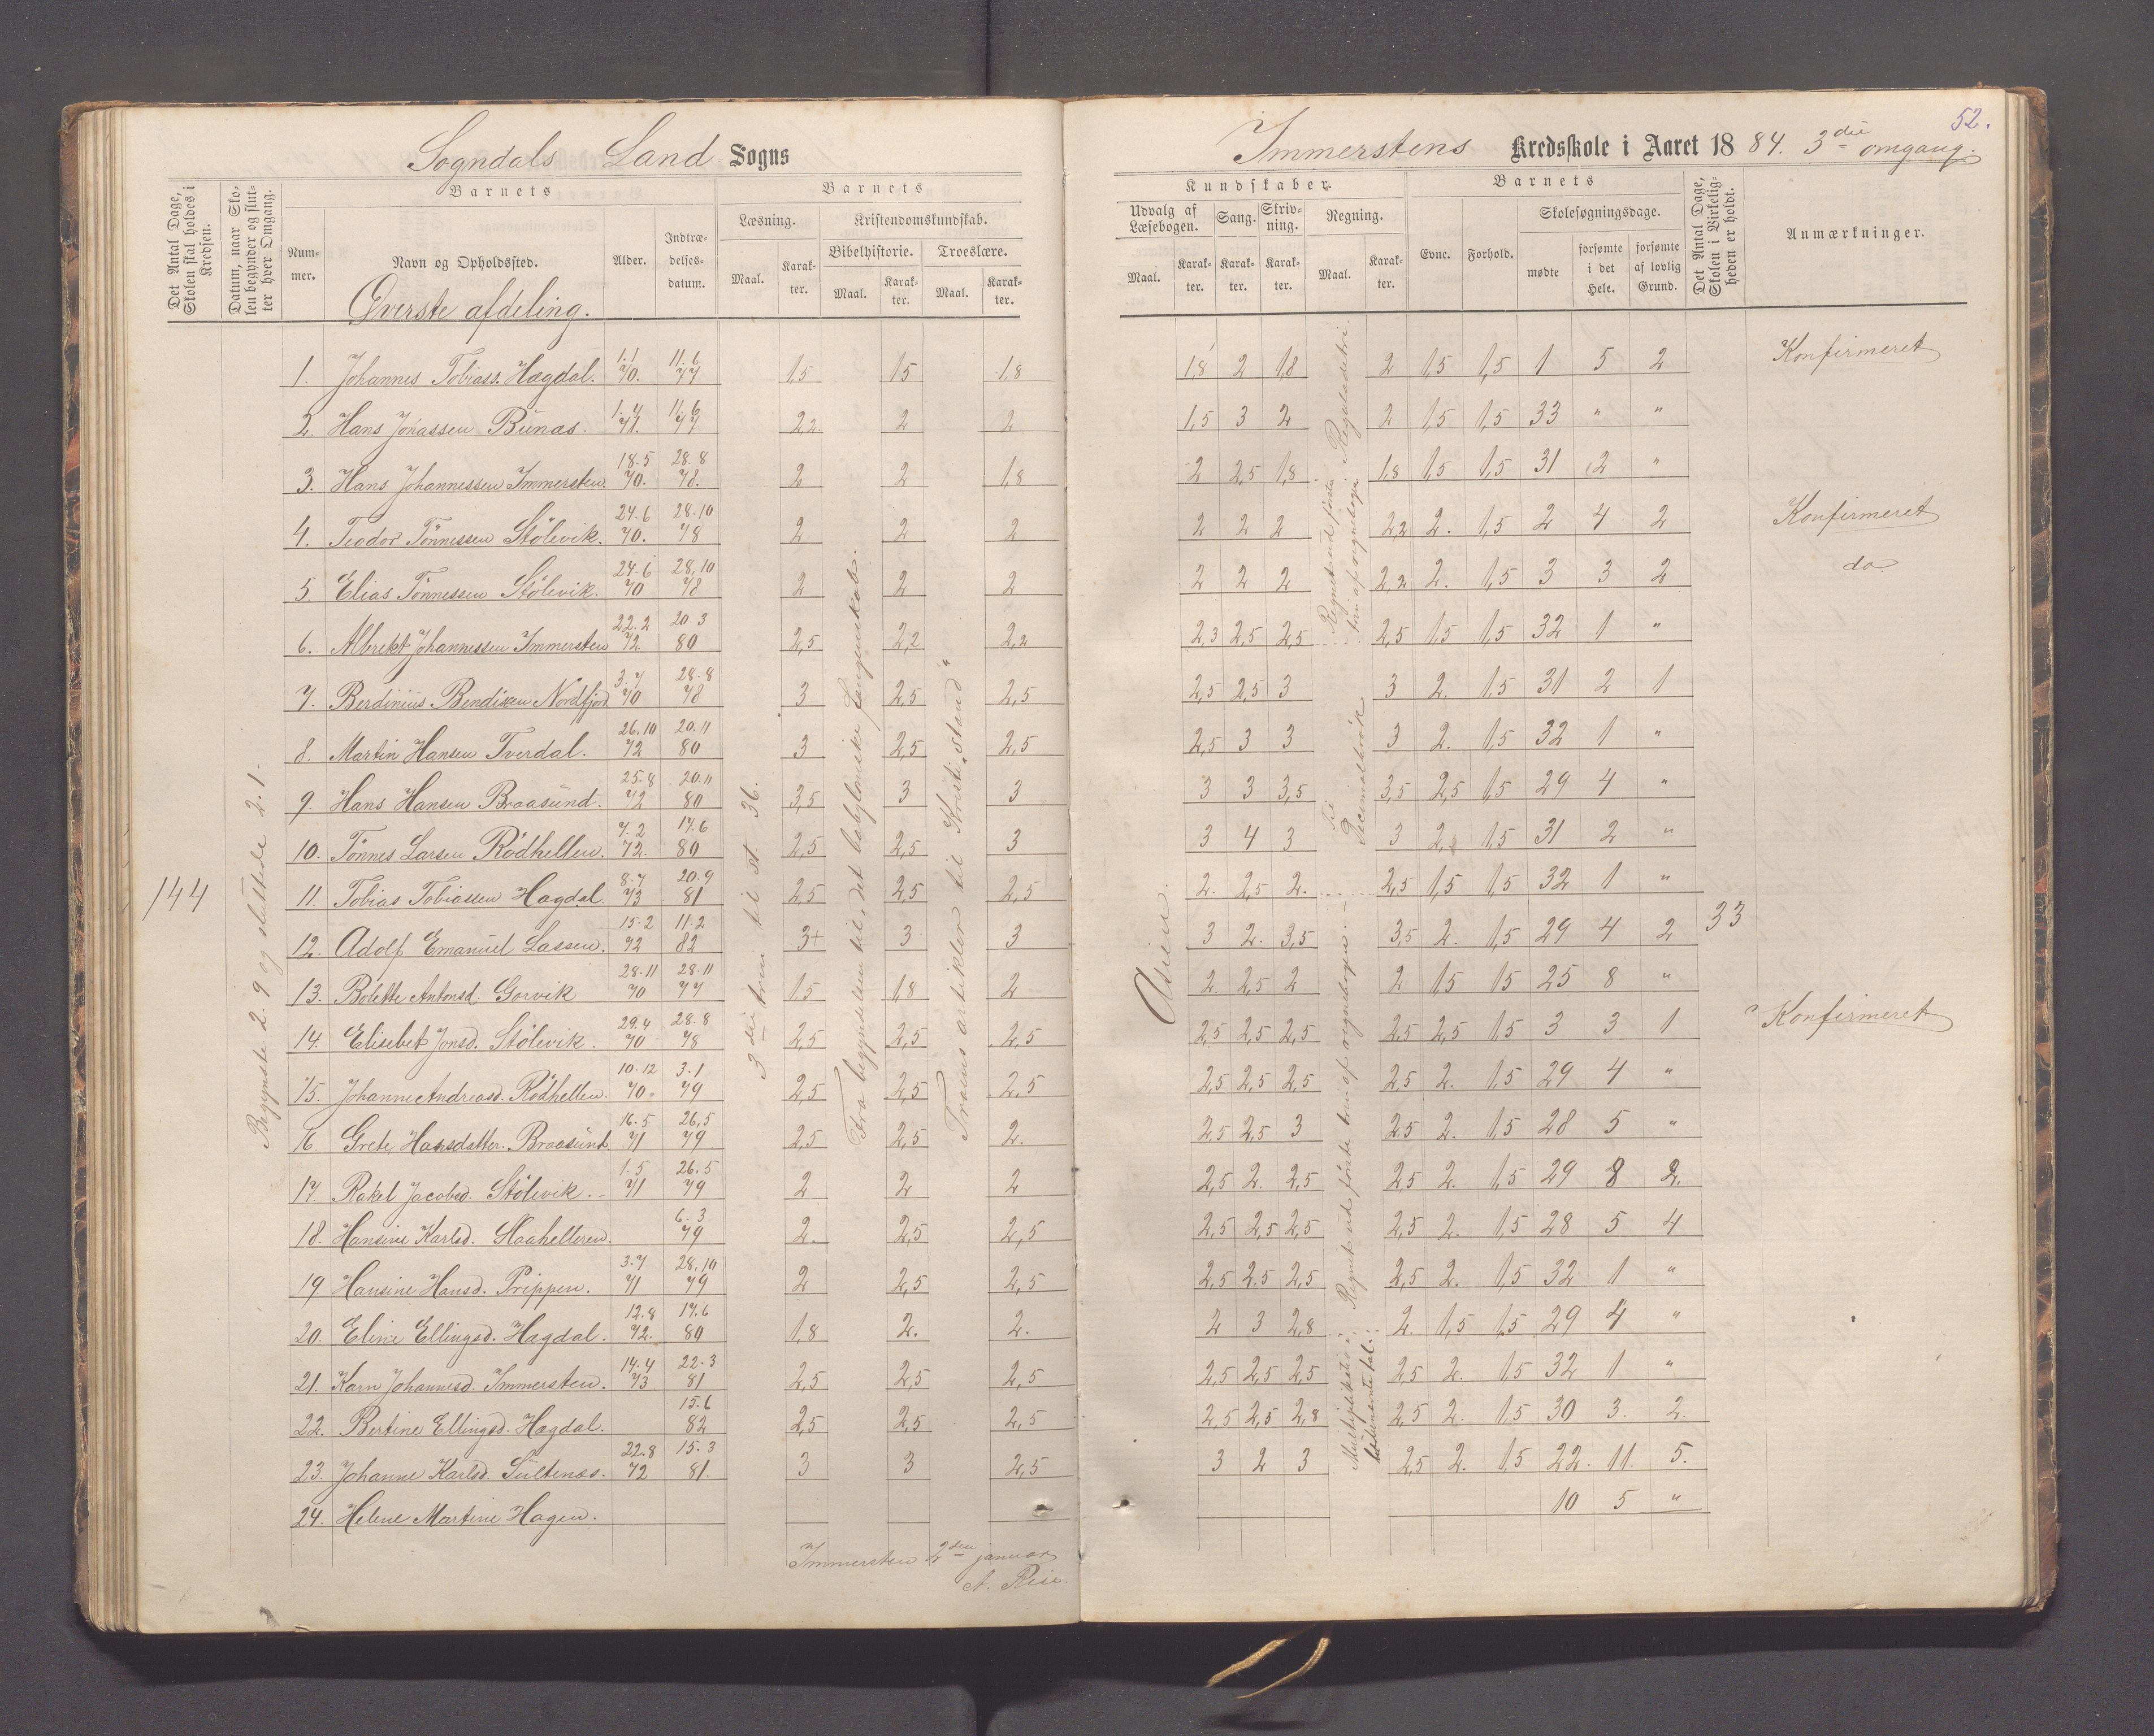 52.
Sogndals Land Sogns
Immerstens Kredsskole i Aaret 1884. 3die omgang.
Det Antal Dage, Skolen skal holdes i Kredsen.
Datum, naar Skolen begynder og slutter hver Omgang.
Barnets
Nummer.
Navn og Opholdssted.
Alder.
Indtrædelsesdatum.
Barnets
Læsning.
Kristendomskundskab.
Bibelhistorie.
Troeslære.
Maal.
Karakter.
Maal.
Karakter.
Maal.
Karakter.
Kundskaber.
Udvalg af Læsebogen.
Sang.
Skrivning.
Regning.
Maal.
Karakter.
Karakter.
Karakter.
Maal.
Karakter.
Barnets
Evne.
Forhold.
Skolesøgningsdage.
mødte
forsømte i det Hele.
forsømte af lovlig Grund.
Det Antal Dage, Skolen i Virkeligheden er holdt.
Anmærkninger.
Øverste afdeling.
1. Johannes Tobiass. Hagdal. 1.1 70. 11.6 77 1,5 1,5 1,8 1,8 2 1,8 2 1,5 1,5 1 5 2 Konfirmeret
2. Hans Jonassen Bunæs. 1.4 71. 11.6 77 2,2 2 2 1,5 3 2 2 1,5 1,5 33 " "
3. Hans Johannessen Immersten. 18.5 70. 28.8 78. 2 2 1,8 2 2,5 1,8 1,8 1,5 1,5 31 2 "
4. Teodor Tönnessen Stölevik. 24.6 70. 28.10 78 2 2 2 2 2 2 2,2 2. 1,5 2 4 2 Konfirmeret
5. Elias Tönnessen Stölevik. 24.6 70 28.10 78 2 2 2 2 2 2 2,2 2. 1,5 3 3 2 do.
6. Albrekt Johannessen Immersten 22.2 72. 20.3 80 2,5 2,2 2,2 2,3 2,5 2,5 2,5 1,5 1,5 32 1 "
7. Berdinius Bendixen Nordfjord 3.7 70 28.8 78 3 2,5 2,5 2,5 2,5 3 3 2. 1,5 31 2 1
8. Martin Hansen Tverdal. 26.10 72 20.11 80 3 2,5 2,5 2,5 3 3 3 2. 1,5 32 1 "
9. Hans Hansen Braasund. 25.8 72 20.11 80 3,5 3 3 3 3 3,5 3,5 2,5 1,5 29 4 "
10. Tönnes Larsen Rödhellen. 7.2 72. 17.6 80 2,5 2,5 3 3 4 3 3 2. 1,5 31 2 "
11. Tobias Tobiassen Hagdal. 8.7 73 20.9 81 2,5 2,5 2,5 2. 2,5 2. 2,5 1,5 1,5 32 1 "
12. Adolf Emanuel Lassen. 15.2 72 11.2 82 3+ 3 3 3 2. 3,5 3,5 2. 1,5 29 4 2
13. Bolette Antonsd. Gorvik 28.11 70 28.11 77 1,5 1,8 2 2 2,5 2 2 1,5 1,5 25 8 "
14. Elisebet Jonsd. Stölevik. 29.4 70 28.8 78 2,5 2,5 2,5 2,5 2,5 2,5 2,5 2,5 1,5 3 3 1 Konfirmeret
15. Johanne Andreasd. Rödhellen. 10.12 70. 3.1 79 2,5 2,5 2,5 2,5 2,5 2,5 2,5 2. 1,5 29 4 "
16. Grete Hansdatter. Braasund. 16.5 71 26.5 79 2,5 2,5 2. 2,5 2,5 3 2,5 2. 1,5 28 5 "
17. Rakel Jacobsd. Stölevik. 1.5 71 26.5 79 2 2 2 2,5 2. 2,5 2,5 2. 1,5 29 8 2.
18. Hansine Karlsd. Staahelleren. 6.3 79 2. 2,5 2,5 2,5 2,5 2,5 2,5 2. 1,5 28 5 4
19 Hansine Hansd. Prippen. 3.7 71 28.10 79 2 2,5 2,5 2,5 2,5 2,5 2,5 2. 1,5 32 1 "
20. Eline Ellingsd. Hagdal. 12.8 72. 17.6 80 1,8 2. 2. 2 3 2,8 2. 1,5 1,5 29 4 "
21. Karn Johannesd. Immersten. 14.4 73 22.3 81 2,5 2,5 2,5 2,5 2,5 2,5 2,5 2. 1,5 32 1 "
22. Bertine Ellingsd. Hagdal. 15.6 82 2,5 2,5 2,5 2,5 2,5 2,8 2,5 2. 1,5 30 3. 2.
23. Johanne Karlsd. Sultenæs. 22.8 72 15.3 81. 3 3 2,5 3 2 3 2,5 2. 1,5 22. 11. 5.
24. Helene Martine Hagen. 10 5 "
144
Begynte 2.9 og sluttede 2.1.
3die trin til st. 36.
Fra begyndelsen til „det babyloniske Fangenskab.
Troens artikler til Kristi „stand"
Asien.
33
Immersten 2den januar
A. Reie.